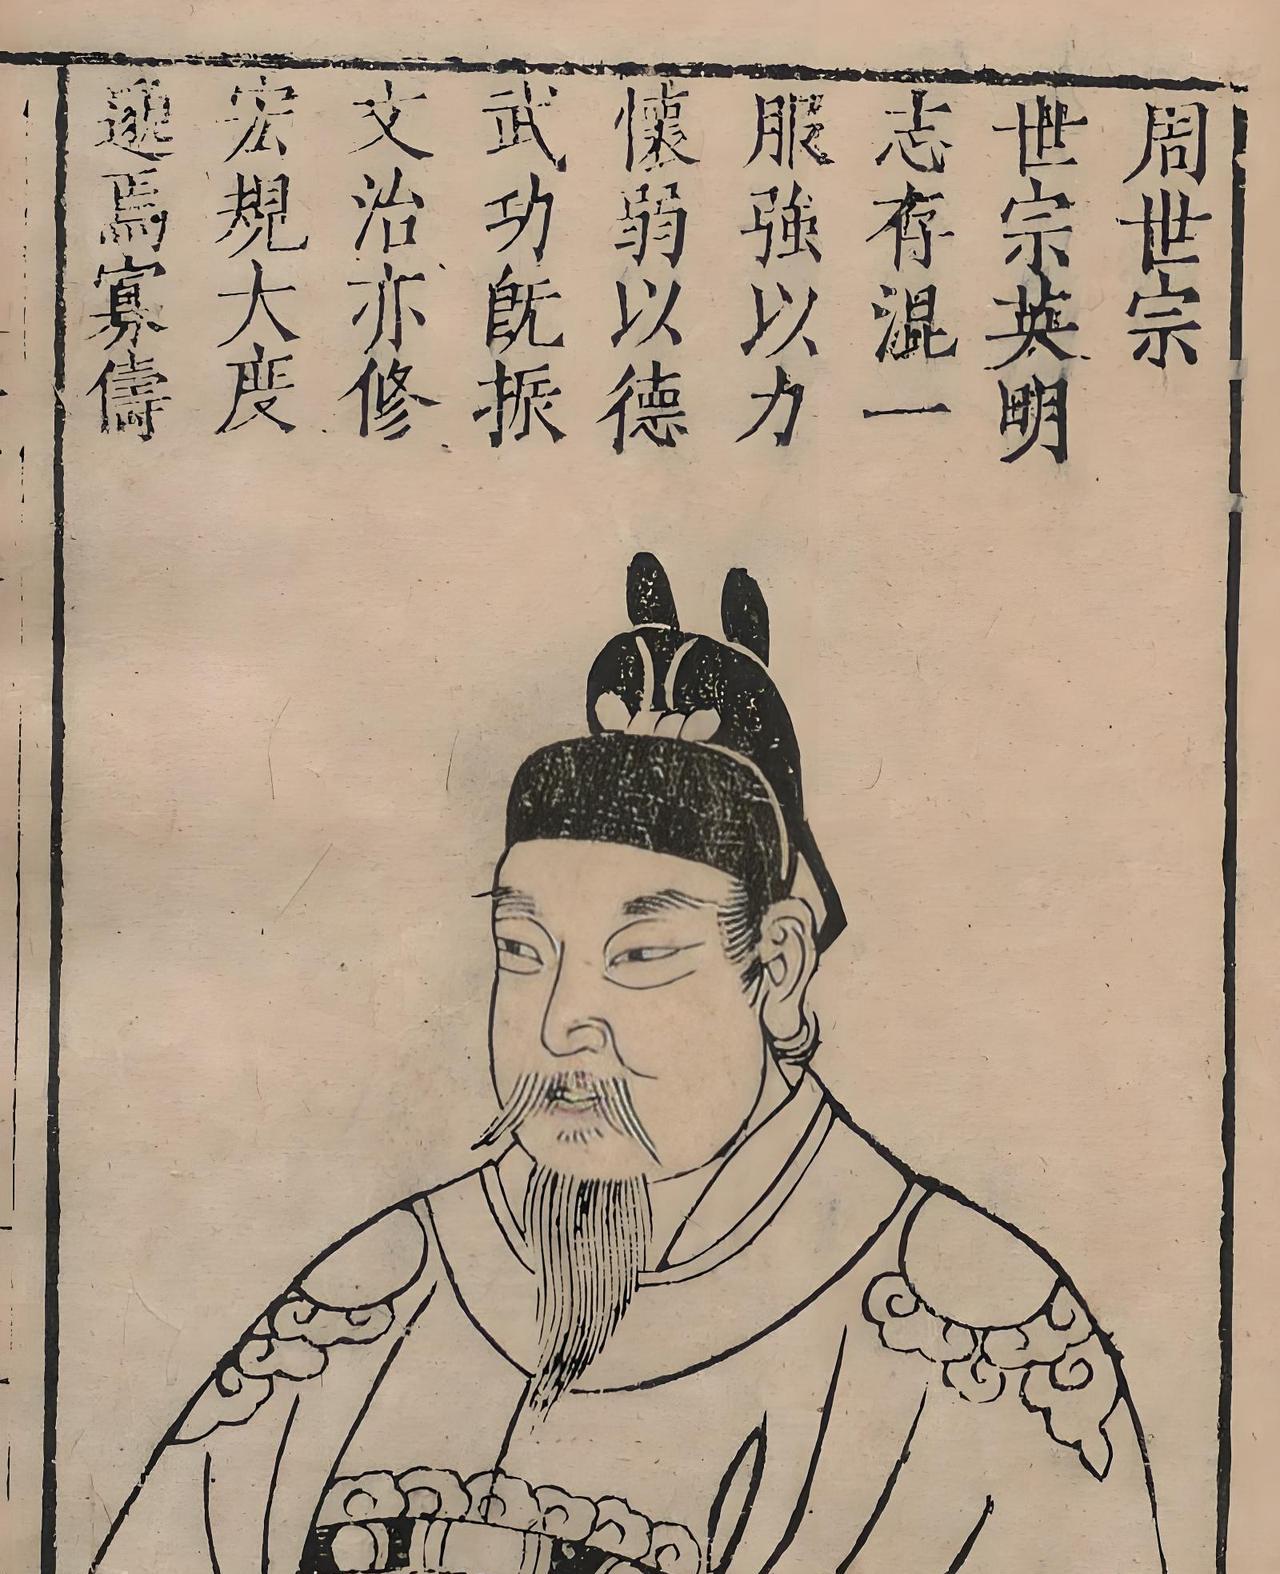 周世宗
世宗英明
志存混一
服強以力
懷弱以德
武功既振
文治亦修
宏規大度
邈焉寡儔